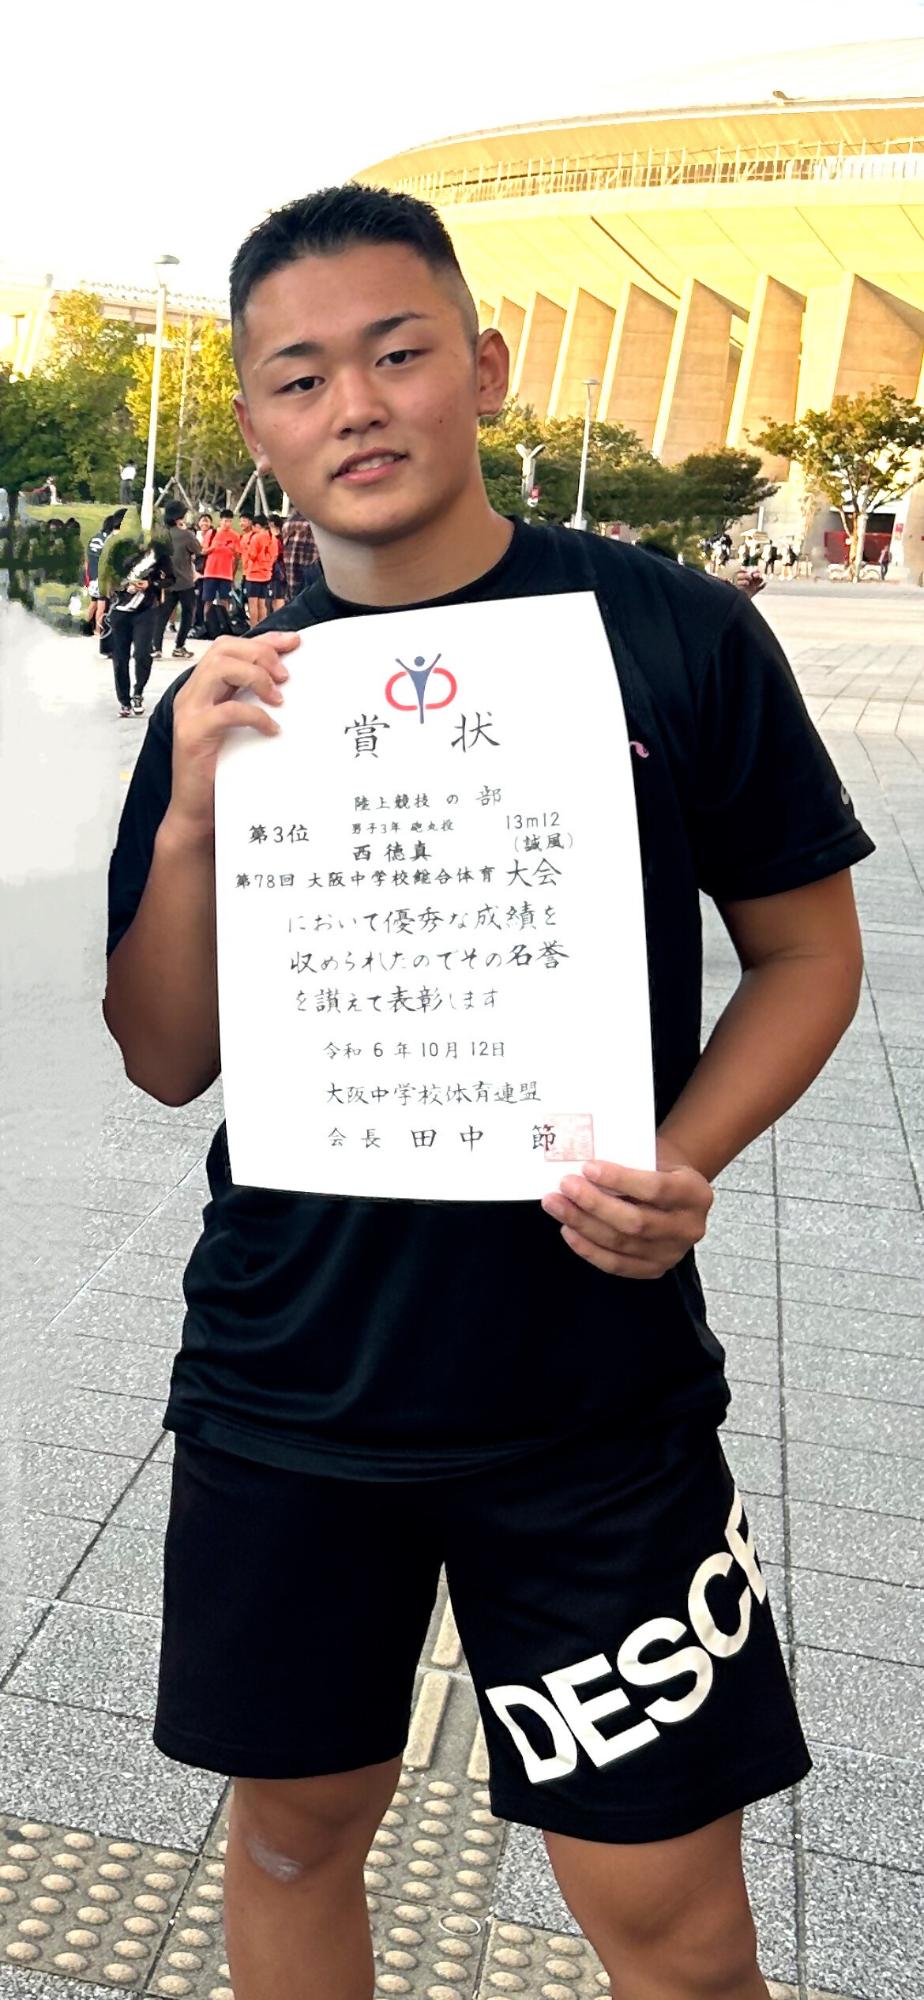 賞状
陸上競技 の 部
第3位 男子3年 砲丸投 13m12
西 徳真 (誠風)
第78回 大阪中学校総合体育 大会
において優秀な成績を
収められたのでその名誉
を讃えて表彰します
令和 6 年 10月 12日
大阪中学校体育連盟
会長 田中 節
DESCE